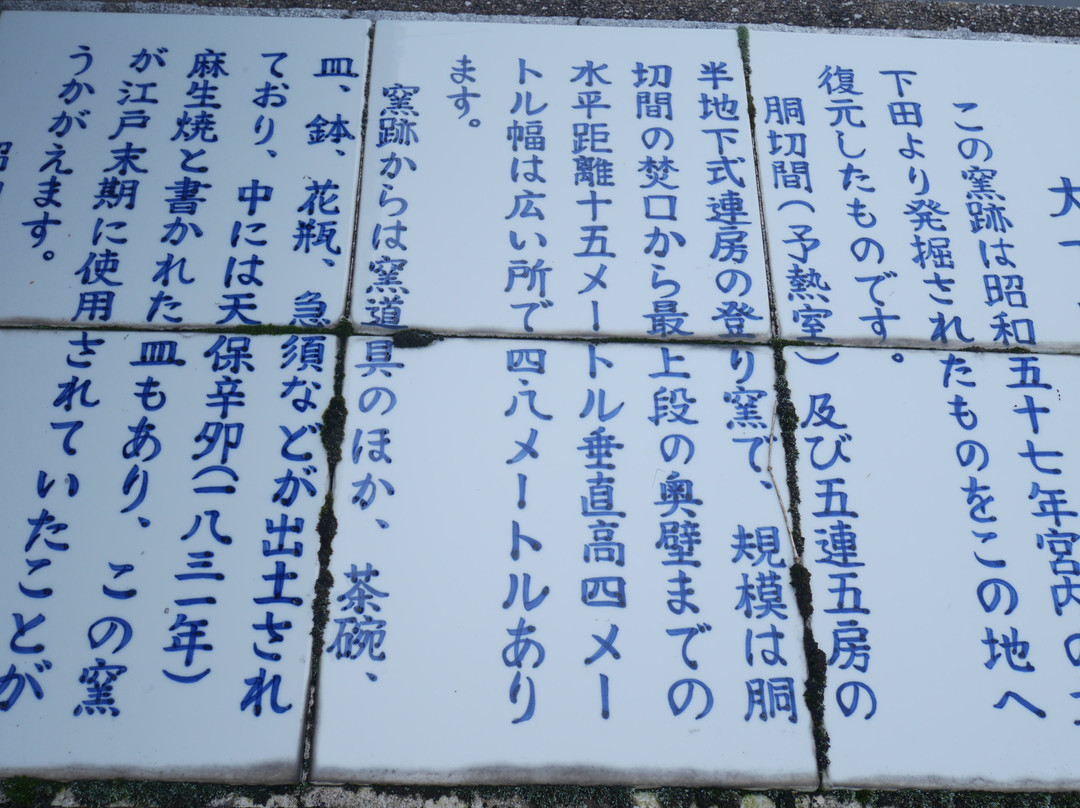 大
この窯跡は昭和五十七年宮内の
下田より発掘されたものをこの地へ
復元したものです。
胴切間(予熱室)及び五連五房の
半地下式連房の登り窯で、規模は胴
切間の焚口から最上段の奥壁までの
水平距離十五メートル垂直高四メー
トル幅は広い所で四・八メートルあり
ます。
窯跡からは窯道具のほか、茶碗、
皿、鉢、花瓶、急須などが出土され
ており、中には天保辛卯(一八三一年)
麻生焼と書かれた皿もあり、この窯
が江戸末期に使用されていたことが
うかがえます。
昭